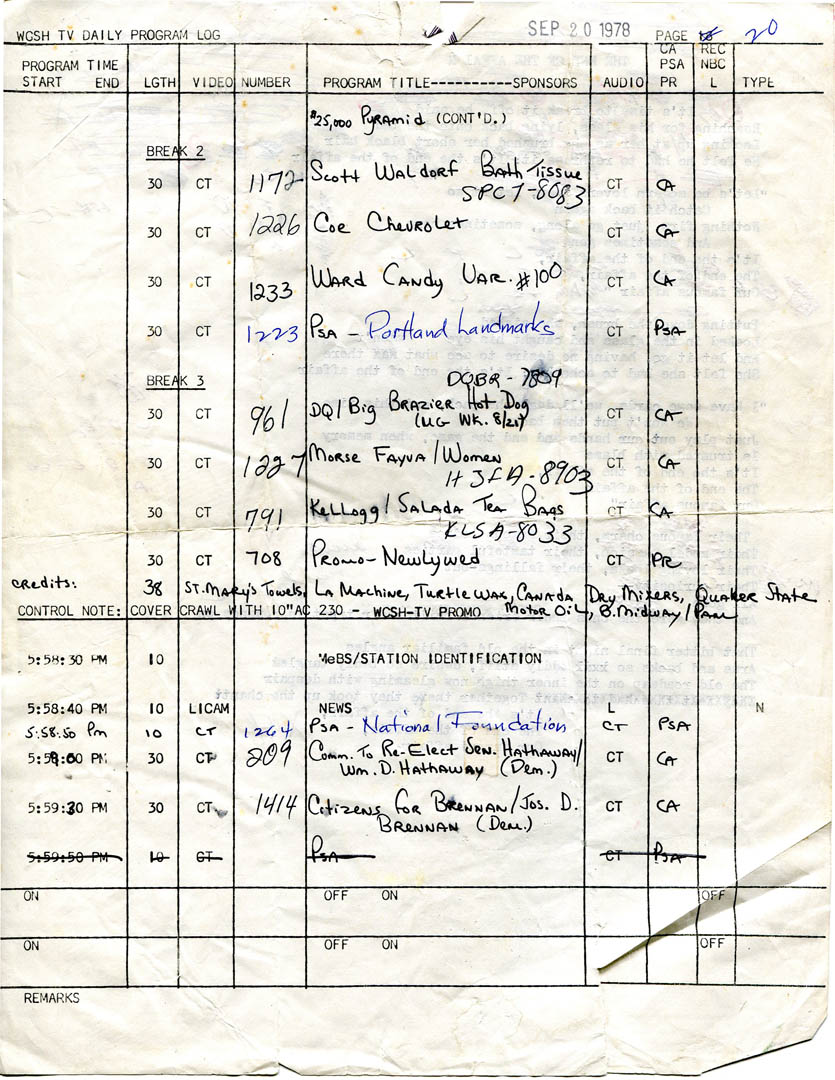 SEP 20 1978
WCSH TV DAILY PROGRAM LOG PAGE 20
PROGRAM TIME CA REC
START END LGTH VIDEO NUMBER PROGRAM TITLE----------SPONSORS AUDIO PSA NBC TYPE
PR L
$25,000 Pyramid (CONT'D.)
BREAK 2
30 CT 1172 Scott Waldorf Bath Tissue CT CA
SPCT-8083
30 CT 1226 Coe Chevrolet CT CA
30 CT 1233 Ward Candy Var. #100 CT CA
30 CT 1223 PSA - Portland Landmarks CT PSA
BREAK 3 DQBR - 7809
30 CT 961 DQ/Big Brazier Hot Dog CT CA
(UG WK. 8/21)
30 CT 1227 Morse Fayva/Women CT CA
HJFA-8903
30 CT 791 Kellogg/Salada Tea Bags CT CA
KLSA-8033
30 CT 708 Promo-Newlywed CT PR
credits: 38 St. Mary's Towels, La Machine, Turtle Wax, Canada Dry Mixers, Quaker State
CONTROL NOTE: COVER CRAWL WITH 10" AC 230 - WCSH-TV PROMO Motor Oil, B. Midway/Pam
5:58:30 PM 10 MeBS/STATION IDENTIFICATION
5:58:40 PM 10 LICAM NEWS L N
5:58:50 Pm 10 CT 1264 PSA - National Foundation CT PSA
5:59:00 PM 30 CT 209 Comm. To Re-Elect Sen. Hathaway/ CT CA
Wm. D. Hathaway (Dem.)
5:59:30 PM 30 CT 1414 Citizens for Brennan/Jos. D. CT CA
Brennan (Dem.)
5:59:50 PM 10 CT PSA CT PSA
ON OFF ON OFF
ON OFF ON OFF
REMARKS